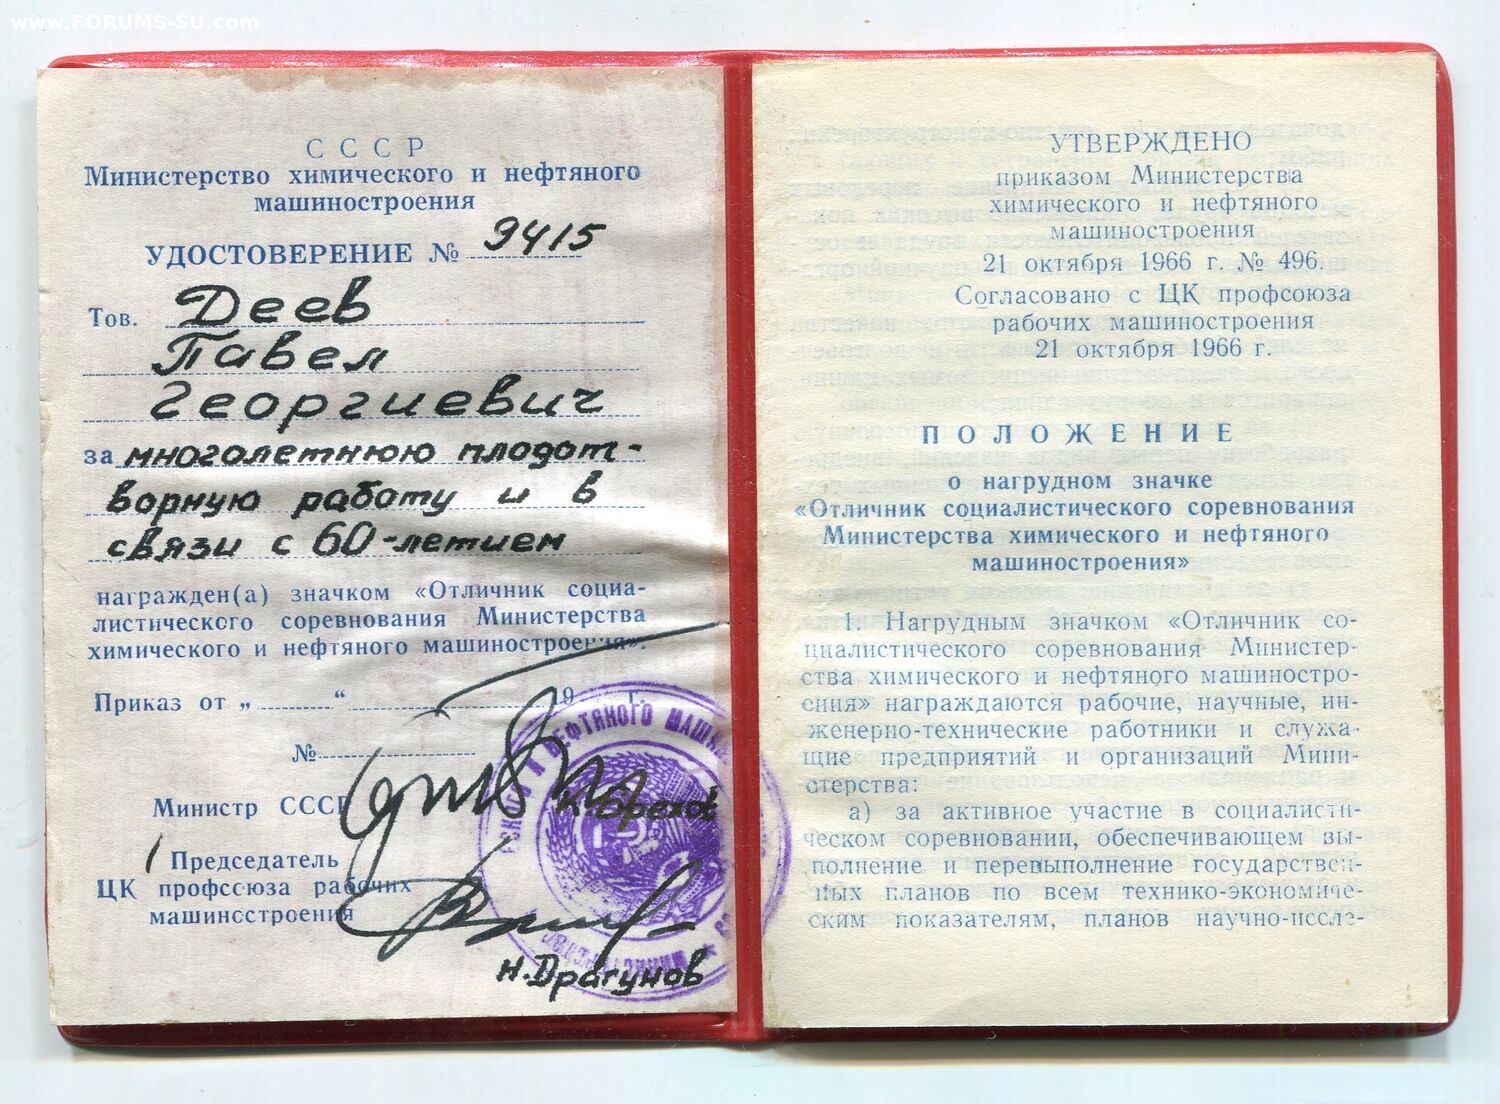 www.FORUMS-SU.com
СССР
Министерство химического и нефтяного
машиностроения
УДОСТОВЕРЕНИЕ № 9415
Тов. Деев
Павел
Георгиевич
за многолетнюю плодот-
ворную работу и в
связи с 60-летием
награжден(а) значком «Отличник социа-
листического соревнования Министерства
химического и нефтяного машиностроения».
Приказ от „ “ 19 г.
№
Министр СССР
К. Брехов
Председатель
ЦК профсоюза рабочих
машиностроения
Н. Драгунов
НЕФТЯНОГО
УТВЕРЖДЕНО
приказом Министерства
химического и нефтяного
машиностроения
21 октября 1966 г. № 496.
Согласовано с ЦК профсоюза
рабочих машиностроения
21 октября 1966 г.
ПОЛОЖЕНИЕ
о нагрудном значке
«Отличник социалистического соревнования
Министерства химического и нефтяного
машиностроения»
1. Нагрудным значком «Отличник со-
циалистического соревнования Министер-
ства химического и нефтяного машинострo-
ения» награждаются рабочие, научные, ин-
женерно-технические работники и служа-
щие предприятий и организаций Мини-
стерства:
а) за активное участие в социалисти-
ческом соревновании, обеспечивающем вы-
полнение и перевыполнение государствен-
ных планов по всем технико-экономиче-
ским показателям, планов научно-иссле-